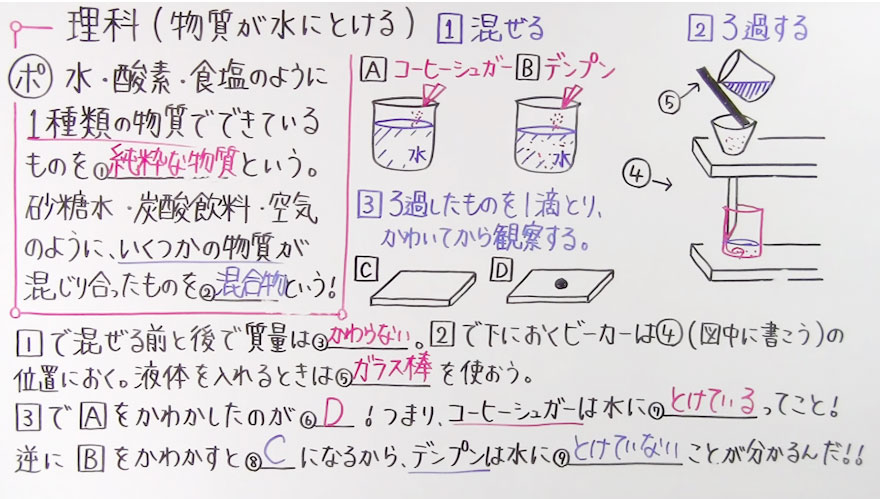 理科(物質が水にとける)
ポ 水・酸素・食塩のように
1種類の物質でできている
ものを①純粋な物質という。
砂糖水・炭酸飲料・空気
のように、いくつかの物質が
混じり合ったものを②混合物という!
1 混ぜる
A コーヒーシュガー B デンプン
水 水
2 ろ過する
⑤
④
3 ろ過したものを1滴とり、
かわいてから観察する。
C D
1で混ぜる前と後で質量は③かわらない。2で下におくビーカーは④(図中に書こう)の
位置におく。液体を入れるときは⑤ガラス棒を使おう。
3でAをかわかしたのが⑥D!つまり、コーヒーシュガーは水に⑦とけているってこと!
逆にBをかわかすと⑧Cになるから、デンプンは水に⑨とけていないことが分かるんだ!!